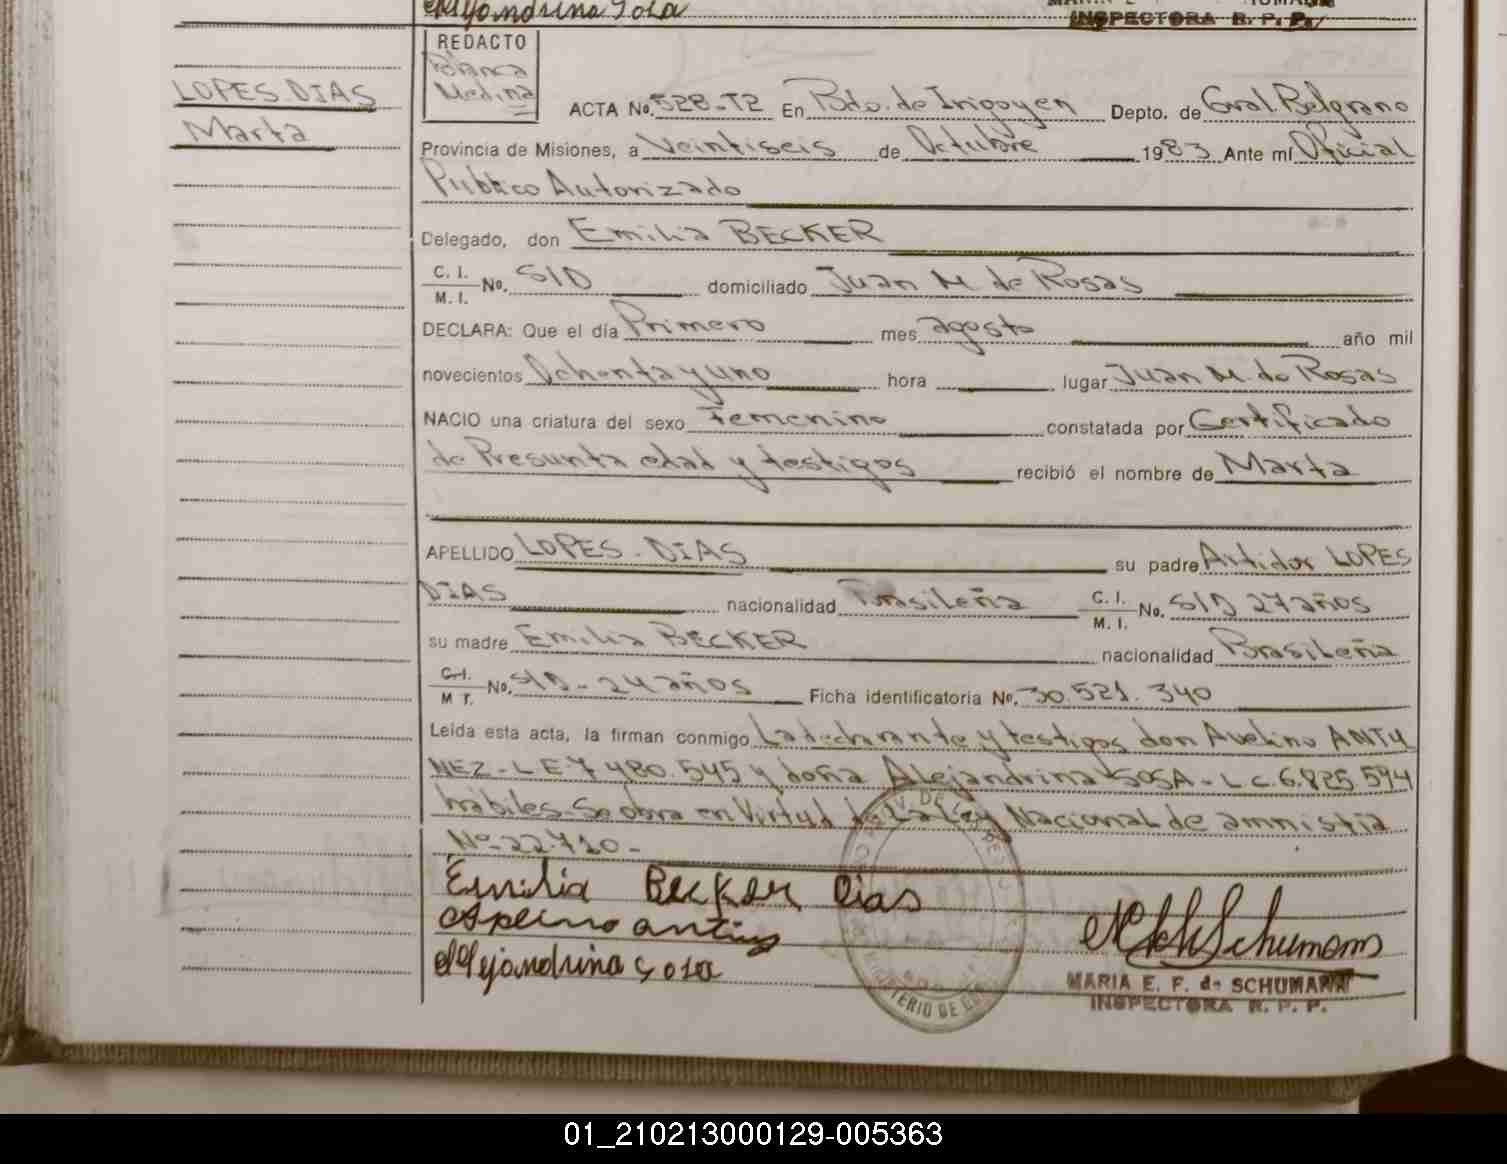 Alejandrina Sosa
INSPECTORA R. P. P.
REDACTO
Blanca
Medina
LOPES DIAS
Marta
ACTA No. 528-T2 En Bdo. de Irigoyen Depto. de Gral. Belgrano
Provincia de Misiones, a Veintiseis de Octubre 1983 Ante mí Oficial
Publico Autorizado
Delegado, don Emilia BECKER
C. I.
M. I. No. S/D domiciliado Juan M. de Rosas
DECLARA: Que el día Primero mes agosto año mil
novecientos Ochenta y uno hora lugar Juan M. de Rosas
NACIO una criatura del sexo Femenino constatada por Certificado
de Presunta edad y testigos recibió el nombre de Marta
APELLIDO LOPES. DIAS su padre LOPES
DIAS nacionalidad Brasileña C. I. M. I. No. S/D 27 años
su madre Emilia BECKER nacionalidad Brasileña
C. I. M I. No. S/D - 24 años Ficha identificatoria No. 30.521.340
Leída esta acta, la firman conmigo La declarante y testigos don Avelino ANTU
NEZ - L E 7 480.545 y doña Alejandrina SOSA - L C 6.825.594
hábiles - Se obra en Virtud de la Ley Nacional de amnistia
Nº 22.710 -
Emilia Becker Dias
Alejandrina Sosa
Schumann
MARIA E. F. de SCHUMANN
INSPECTORA R. P. P.
01_210213000129-005363